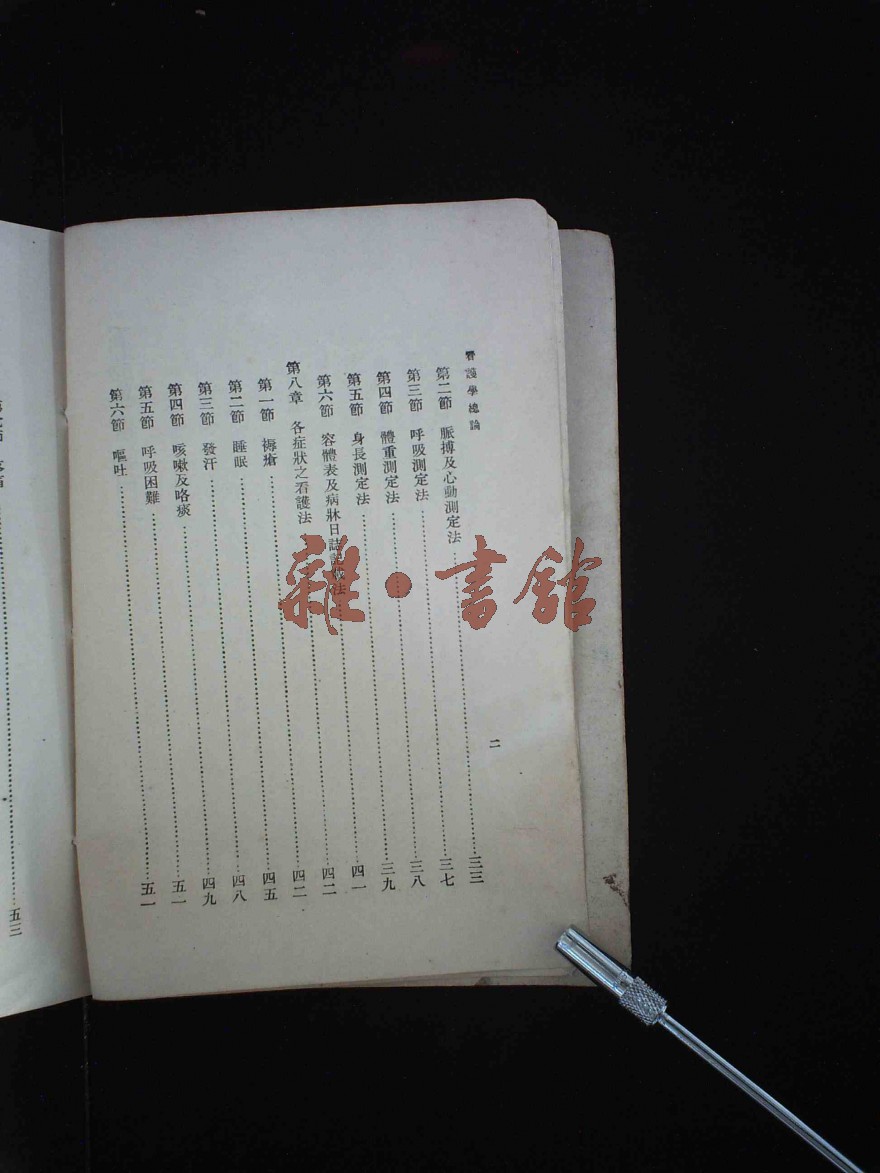 看護學總論
二
第二節 脈搏及心動測定法……三三
第三節 呼吸測定法……三七
第四節 體重測定法……三八
第五節 身長測定法……三九
第六節 容體表及病牀日誌記載法……四一
第八章 各症狀之看護法……四二
第一節 褥瘡……四二
第二節 睡眠……四五
第三節 發汗……四八
第四節 咳嗽及咯痰……四九
第五節 呼吸困難……五一
第六節 嘔吐……五一
……五三
雜·書館